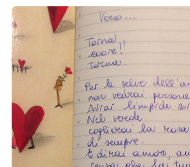 Verso...
Torna,
cuore!
torna
Per le selve dell'a
non vedrai persone
Avrai limpide
Nel verde
coglierai la rosa
di sempre.
E dirai amore, a